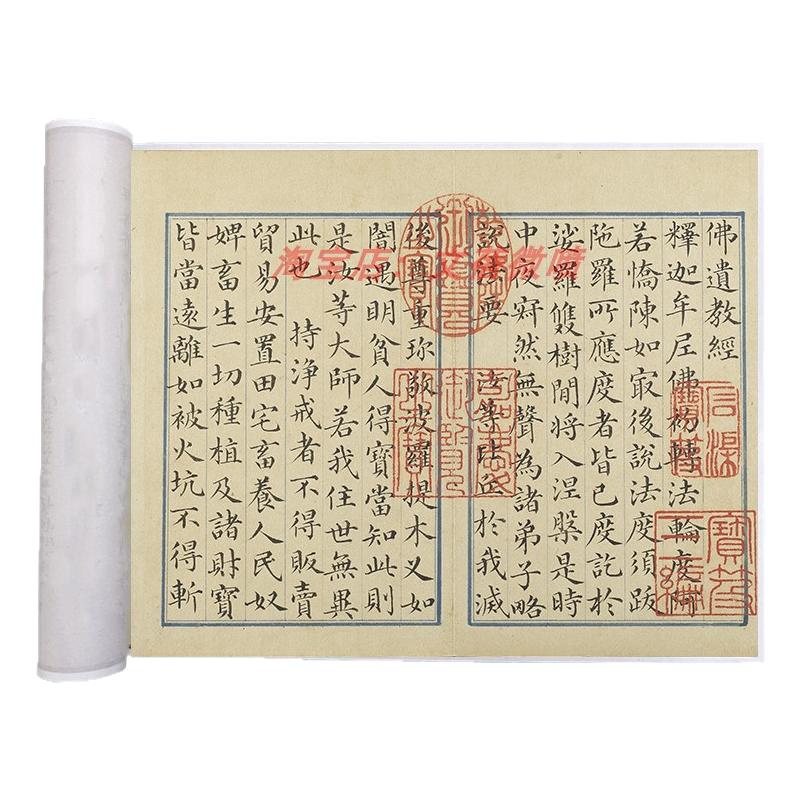 佛遺教經
釋迦牟尼佛初轉法輪度阿
若憍陳如㝡後說法度須跋
陁羅所應度者皆已度訖於
娑羅雙樹間將入涅槃是時
中夜寂然無聲為諸弟子略
說法要 汝等比丘於我滅
後尊重珍敬波羅提木叉如
闇遇明貧人得寶當知此則
是汝等大師若我住世無異
此也 持浄戒者不得販賣
貿易安置田宅畜養人民奴
婢畜生一切種植及諸財寶
皆當遠離如被火坑不得斬
石渠
寶笈
寶笈
三編
淘宝店